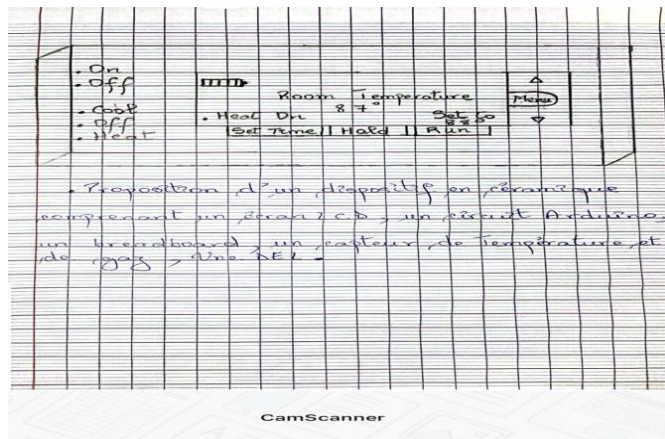 . On
. Off
. Cool
. Off
. Heat
Room Temperature
87°
. Heat On
Set to
88°
Set Time
Hold
Run
Menu
. Proposition d'un dispositif en céramique
comprenant un écran LCD, un circuit Arduino,
un breadboard, un capteur de Température et
de gaz, Une DEL.
CamScanner